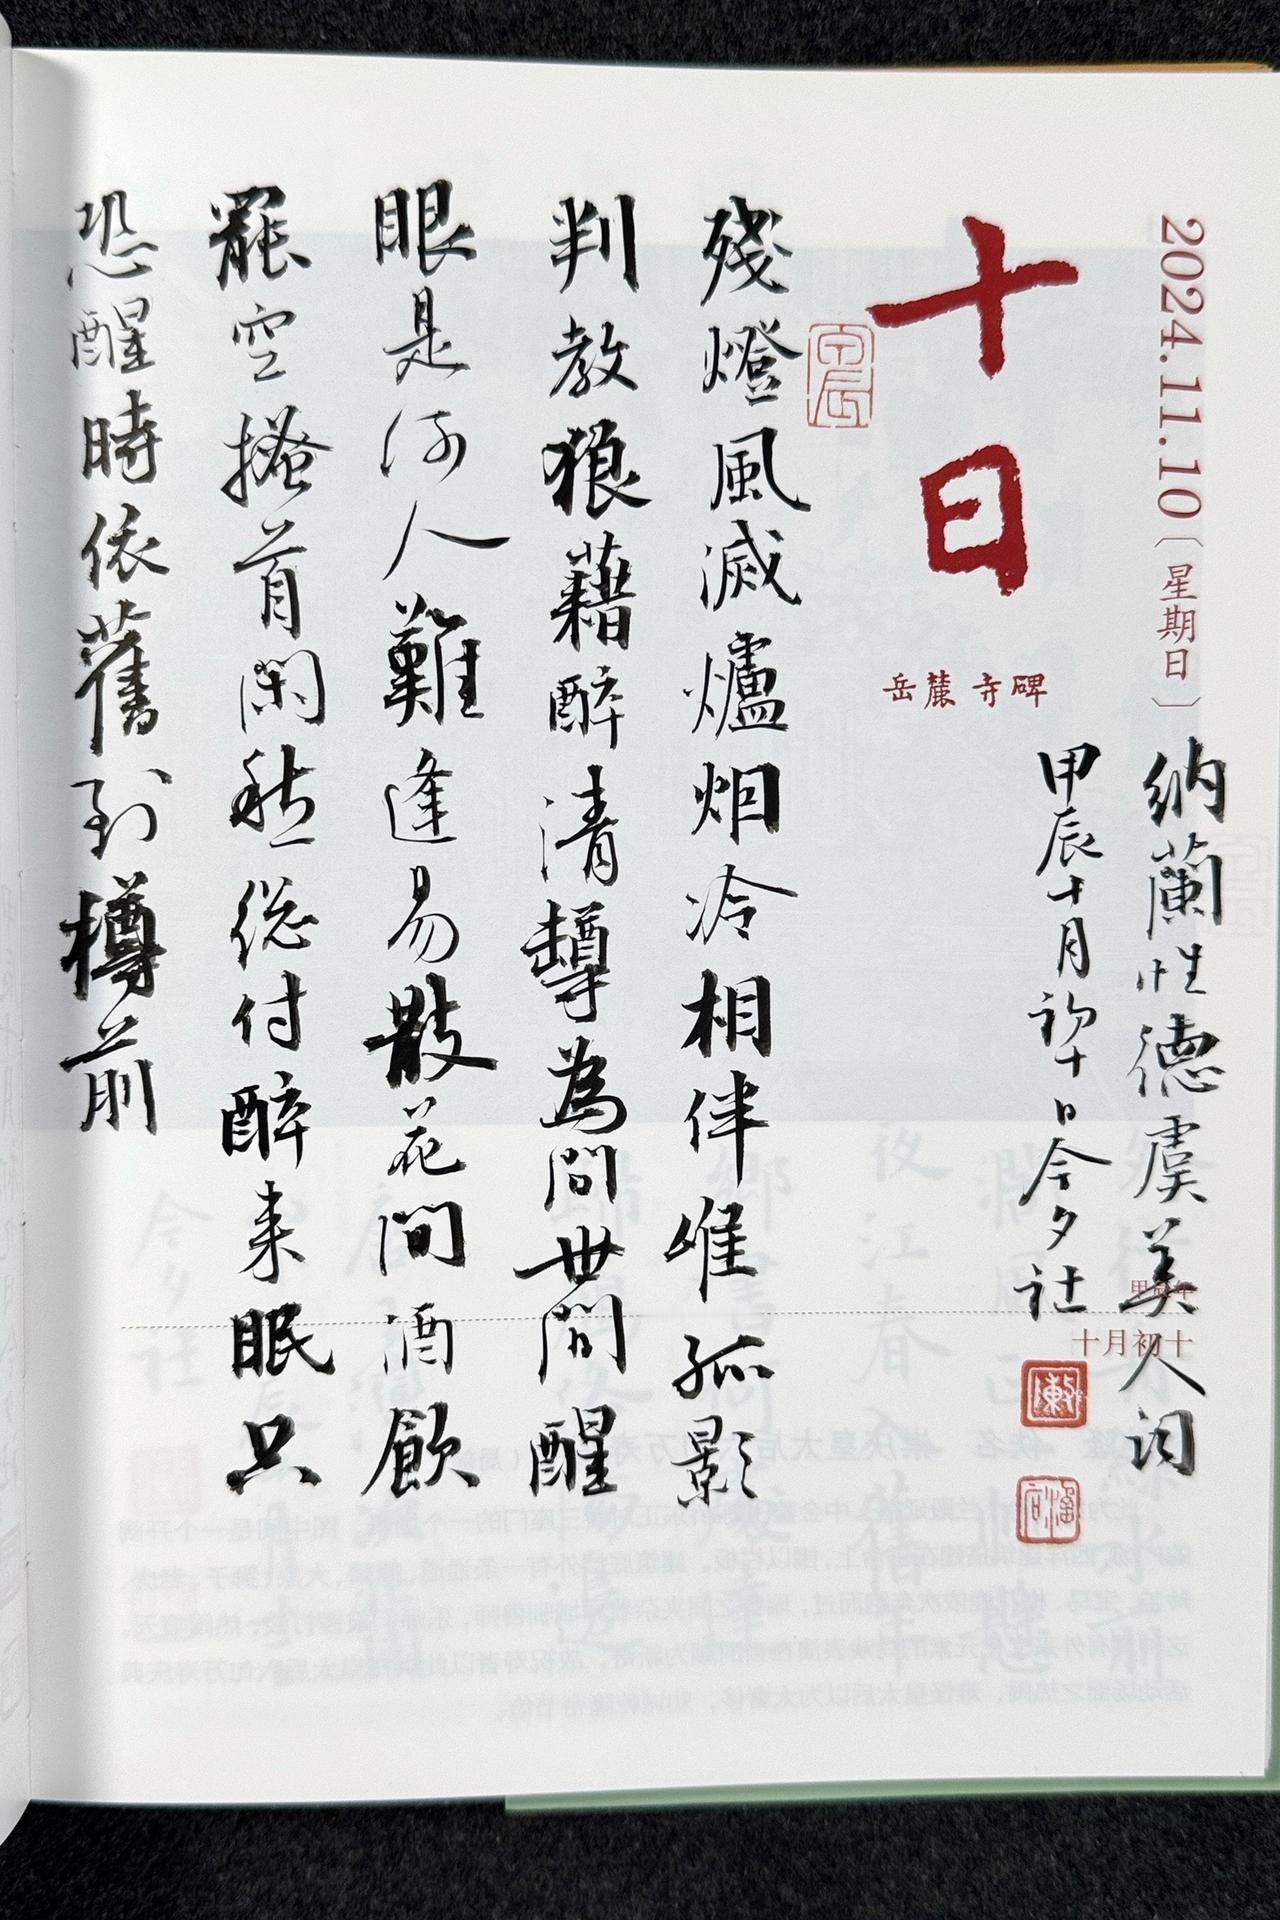 2024.11.10〔星期日〕
十日
岳麓寺碑
納蘭性德虞美人詞
甲辰十月初十日今夕社
甲辰年
十月初十
殘燈風滅爐烟冷相伴唯孤影
判教狼藉醉清罇為問世間醒
眼是何人難逢易散花間酒飲
罷空搔首閑愁総付醉来眠只
恐醒時依舊到樽前